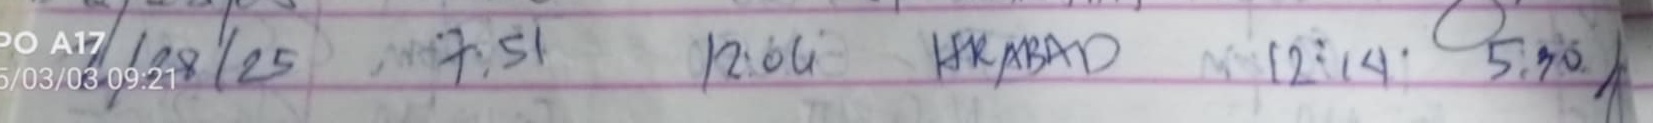 PO A17
5/03/03 09:21
/28/25 7:51 12:04 12:14 5:30